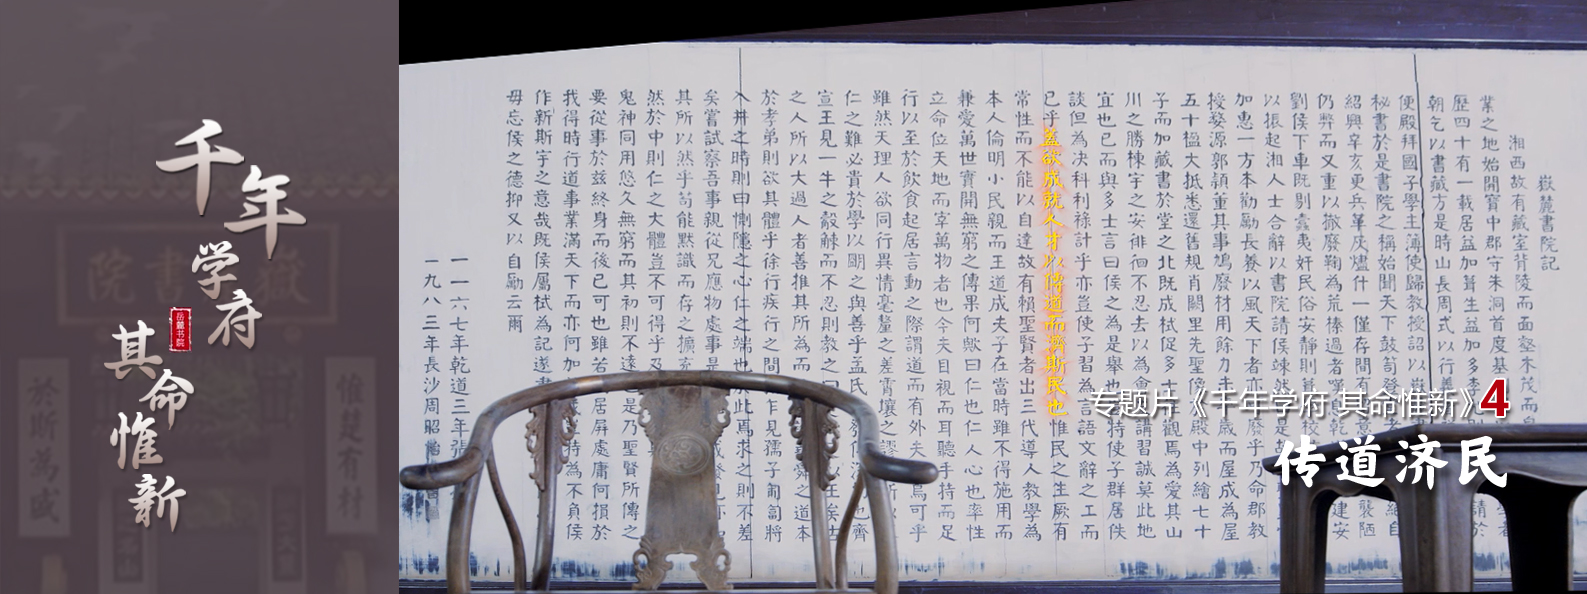 千年
学府
其命
惟新
岳麓书院
嶽麓書院
惟楚有材
於斯為盛
嶽麓書院記
湘西故有藏室背陵而面壑木茂而
業之地始開寶中郡守朱洞首度基
歷四十有一載居益加葺生益加多李 請於
朝乞以書藏方是時山長周式以行義
便殿拜國子學主簿使歸教授詔以嶽
秘書於是書院之稱始聞天下鼓笥登
紹興辛亥更兵革灰燼什一僅存間有 襲陋
仍弊而又重以撤廢鞠為荒榛過者嘆 乾 建安
劉侯下車既剔蠹夷奸民俗安靜則葺 校
以振起湘人士合辭以書院請侯竦然 是
加惠一方本勸勵長養以風天下者亦 廢乎乃命郡教
授婺源郭穎董其事鳩廢材用餘力未 歲而屋成為屋
五十楹大抵悉還舊規肖闕里先聖像 殿中列繪七十
子而加藏書於堂之北既成栻促多士 觀焉為愛其山
川之勝棟宇之安徘徊不忍去以為會 講習誠莫此地
宜也已而與多士言曰侯之為是舉也 特使子群居佚
談但為決科利祿計乎亦豈使子習為言語文辭之工而
已乎蓋欲成就人才以傳道而濟斯民也惟民之生厥有
常性而不能以自達故有賴聖賢者出三代導人教學為
本人倫明小民親而王道成夫子在當時雖不得施用而
兼愛萬世實開無窮之傳果何歟曰仁也仁人心也率性
立命位天地而宰萬物者也今夫目視而耳聽手持而足
行以至於飲食起居言動之際謂道而有外夫 烏可乎
雖然天理人欲同行異情毫釐之差霄壤之謬 所以
仁之難必貴於學以明之與善乎孟氏 也齊
宣王見一牛之觳觫而不忍則教之曰
之人所以大過人者善推其所為而 舜之道本
於孝弟則欲其體乎徐行疾行之間 乍見孺子匍匐將
入井之時則曰惻隱之心仁之端也於此焉求之則不差
矣嘗試察吾事親從兄應物處事是
其所以然乎苟能默識而存之擴充
然於中則仁之大體豈不可得乎及
鬼神同用悠久無窮而其初則不遠 是乃聖賢所傳之
要從事於茲終身而後已可也雖若 居屏處庸何損於
我得時行道事業滿天下而亦何加 為不負侯
作新斯宇之意哉既侯屬栻為記遂書
毋忘侯之德抑又以自勵云爾
一一六七年乾道三年張
一九八三年長沙周昭
专题片《千年学府 其命惟新》4
传道济民